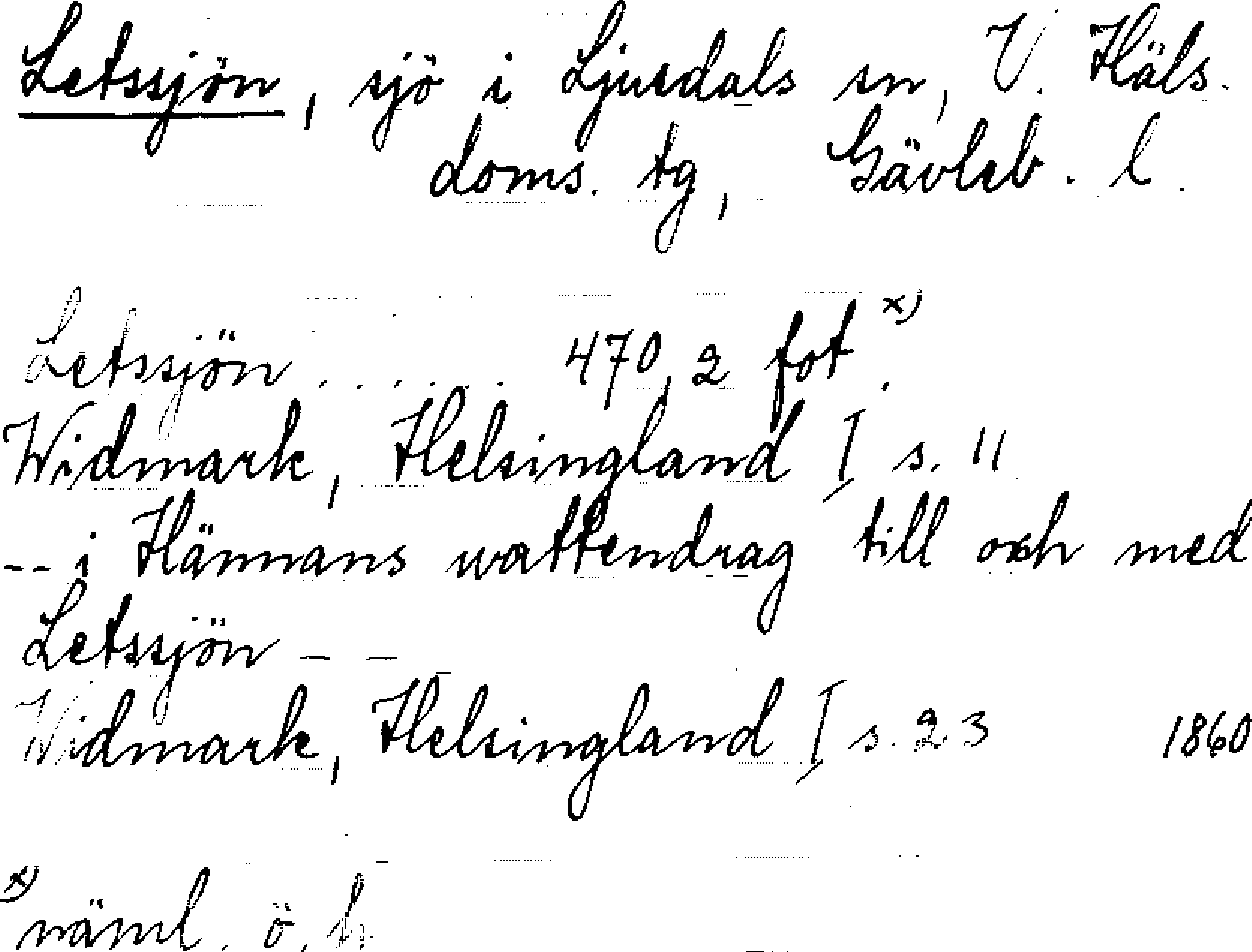 Letssjön, sjö i Ljusdals sn, V. Häls.
doms. tg, Gävleb. l.
Letssjön . . . . . . 470,2 fot x).
Widmark, Helsingland I s. 11
-- i Hännans wattendrag till och med
Letssjön - - -
Widmark, Helsingland I s. 23 1860
x) näml. ö. h